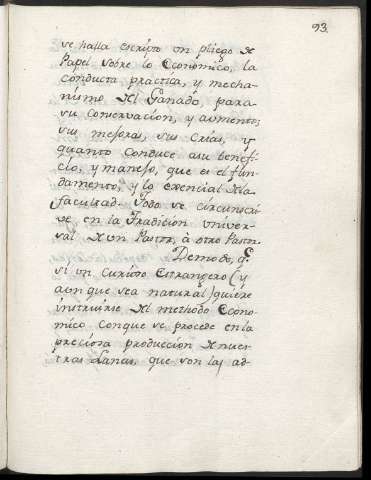 93.
se halla escripto un pliego de
Papel sobre lo Economico, la
conducta practica, y mecha-
nismo del Ganado, para
su conservacion, y aumento;
sus mejoras, sus Crias, y
quanto conduce a su benefi-
cio, y manejo, que es el fun-
damento, y lo esencial de la
facultad. Todo se circunscri-
ve en la Tradicion univer-
sal de un Pastor, à otro Pastor.
De modo, qe
si un Curioso Estrangero (y
aun que sea natural) quiere
instruirse del methodo Econo-
mico con que se procede en la
preciosa produccion de nues-
tras Lanas, que son las ad-